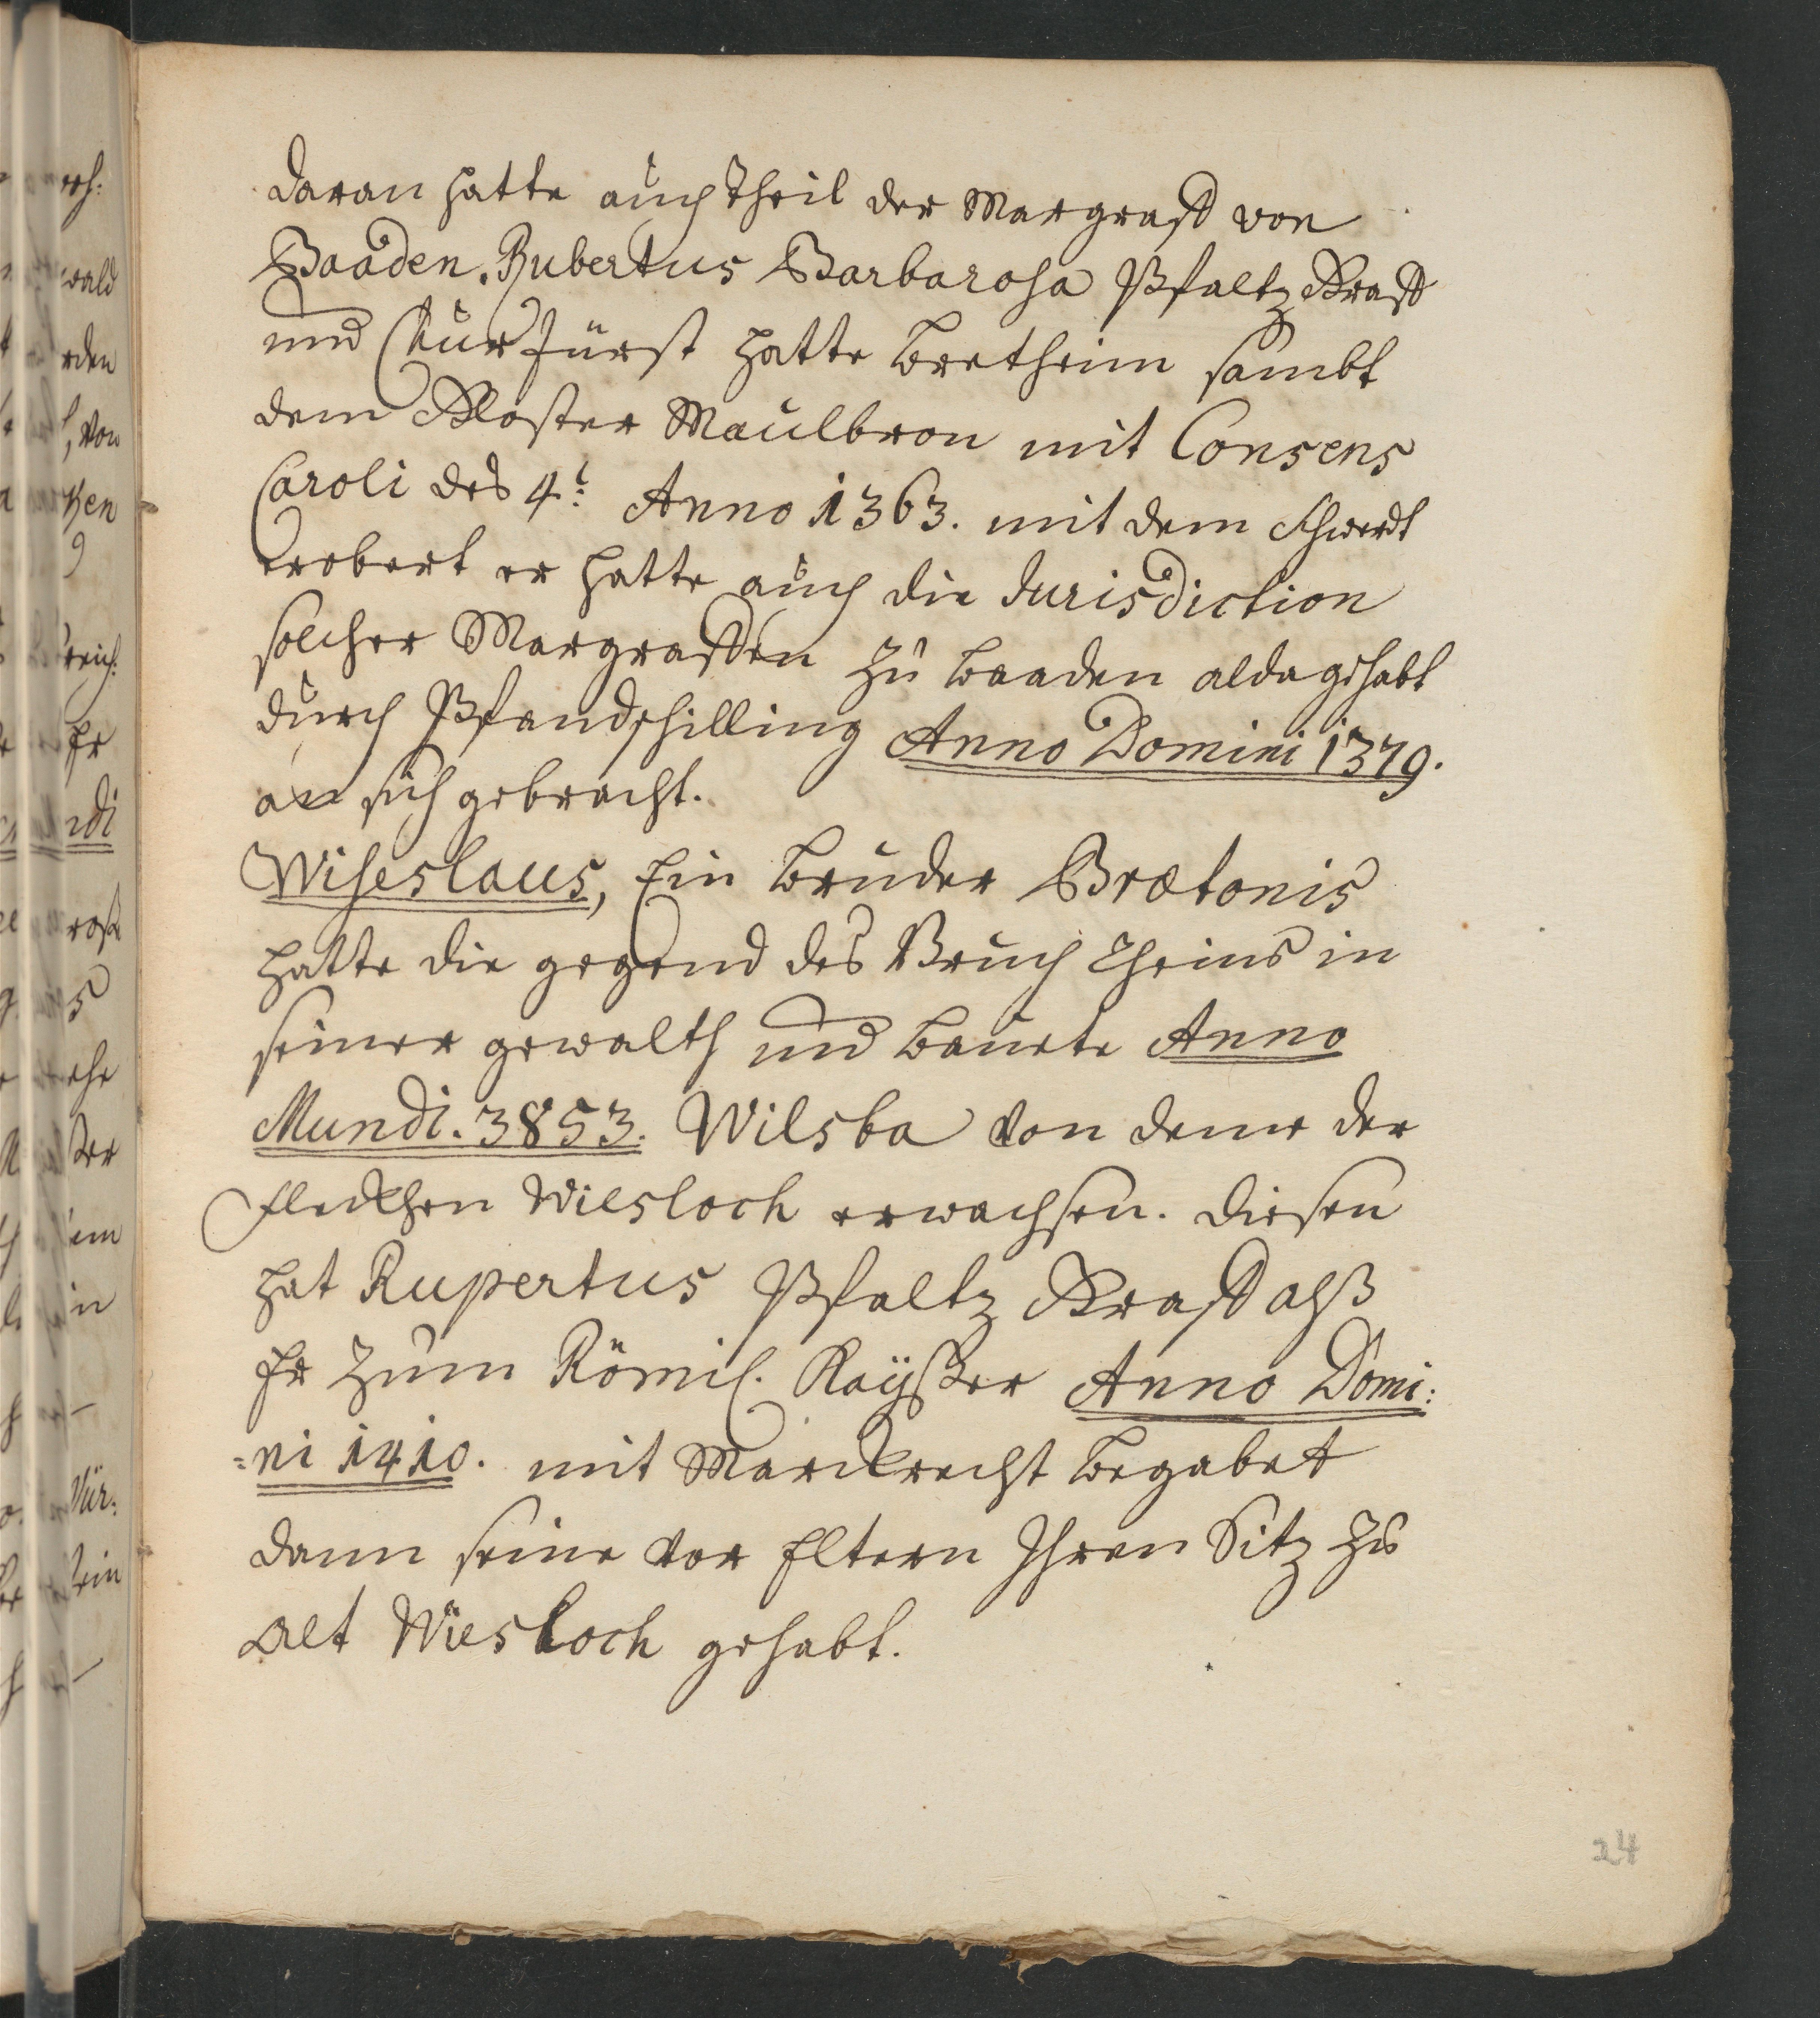 daran hatte auch Theil der Margraff von
Baaden. Rubertus Barbarosa Pfaltz Graff
und ChurFürst hatte Bretheim sambt
dem Closter Maulbron mit Consens
Caroli des 4t: Anno 1363. mit dem Schwerdt
erobert er hatte auch die Jurisdiction
solcher Margraffen zu Baaden alda gehabt
durch Pfandschilling Anno Domini 1379.
an sich gebracht.
Wiseslaus, Ein Bruder Brætonis
hatte die gegend des Bruch Rheins in
seiner gewalth und Bauete Anno
Mundi. 3853. Wilsba von deme der
Fleckhen Wiesloch erwachsen. diesen
hat Rupertus Pfaltz Graff alß
Er zum Römis. Kaÿßer Anno Domi:
=ni 1410. mit Marckrecht Begabet
dann seine vor Eltern Ihren Sitz zu
Alt Wiesloch gehabt.
24